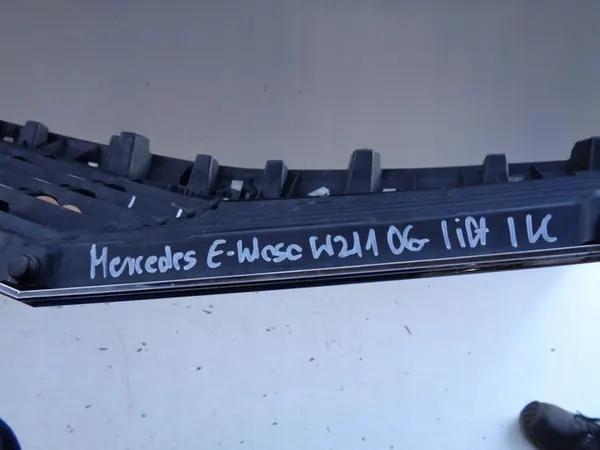 Mercedes E-Wcse W211 06 lift IK